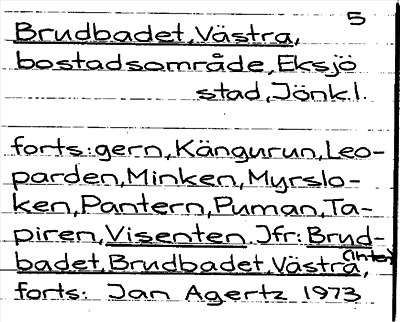 5
Brudbadet, Västra,
bostadsområde, Eksjö
stad, Jönk.l.
forts: gern, Kängurun, Leo-
parden, Minken, Myrslo-
ken, Pantern, Puman, Ta-
piren, Visenten. Jfr: Brud-
badet, Brudbadet Västra (Inter),
forts: Jan Agertz 1973